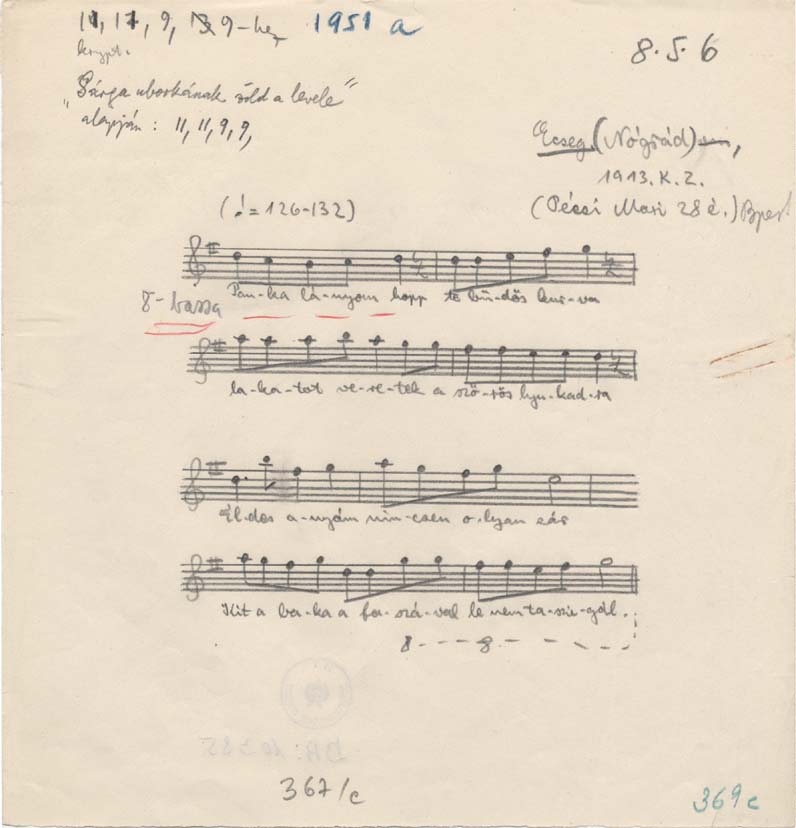 11, 17, 9, 9-hez 1951 a
8.5.6
"Sárga uborkának zöld a levele"
alapján: 11, 11, 9, 9,
Ecseg (Nógrád)
1913. K. Z.
(♩= 126-132)
(Pécsi Mari 28 é.) Bpest
Pan-ka lá-nyom hopp te bü-dös kur-va
la-ka-tot ve-re-tek a sző-rös lyu-kad-ra
Él-des a-nyám nin-csen o-lyan zár
Kit a ba-ka a fa-szá-val le nem ta-szi-gál.
8 - - - 8
367/c
369 c